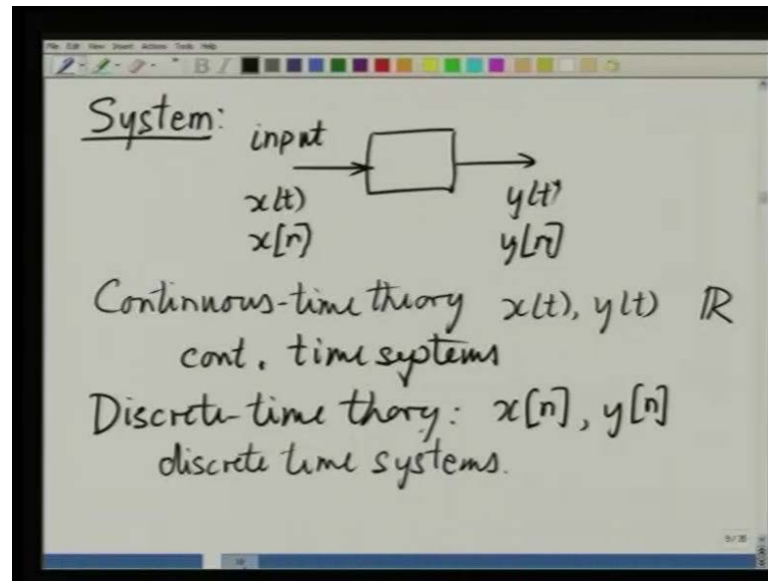 File Edit View Insert Actions Tools Help
B I
System:
input
x(t) y(t)
x[n] y[n]
Continuous-time theory x(t), y(t) ℝ
cont. time systems
Discrete-time thory: x[n], y[n]
discrete time systems.